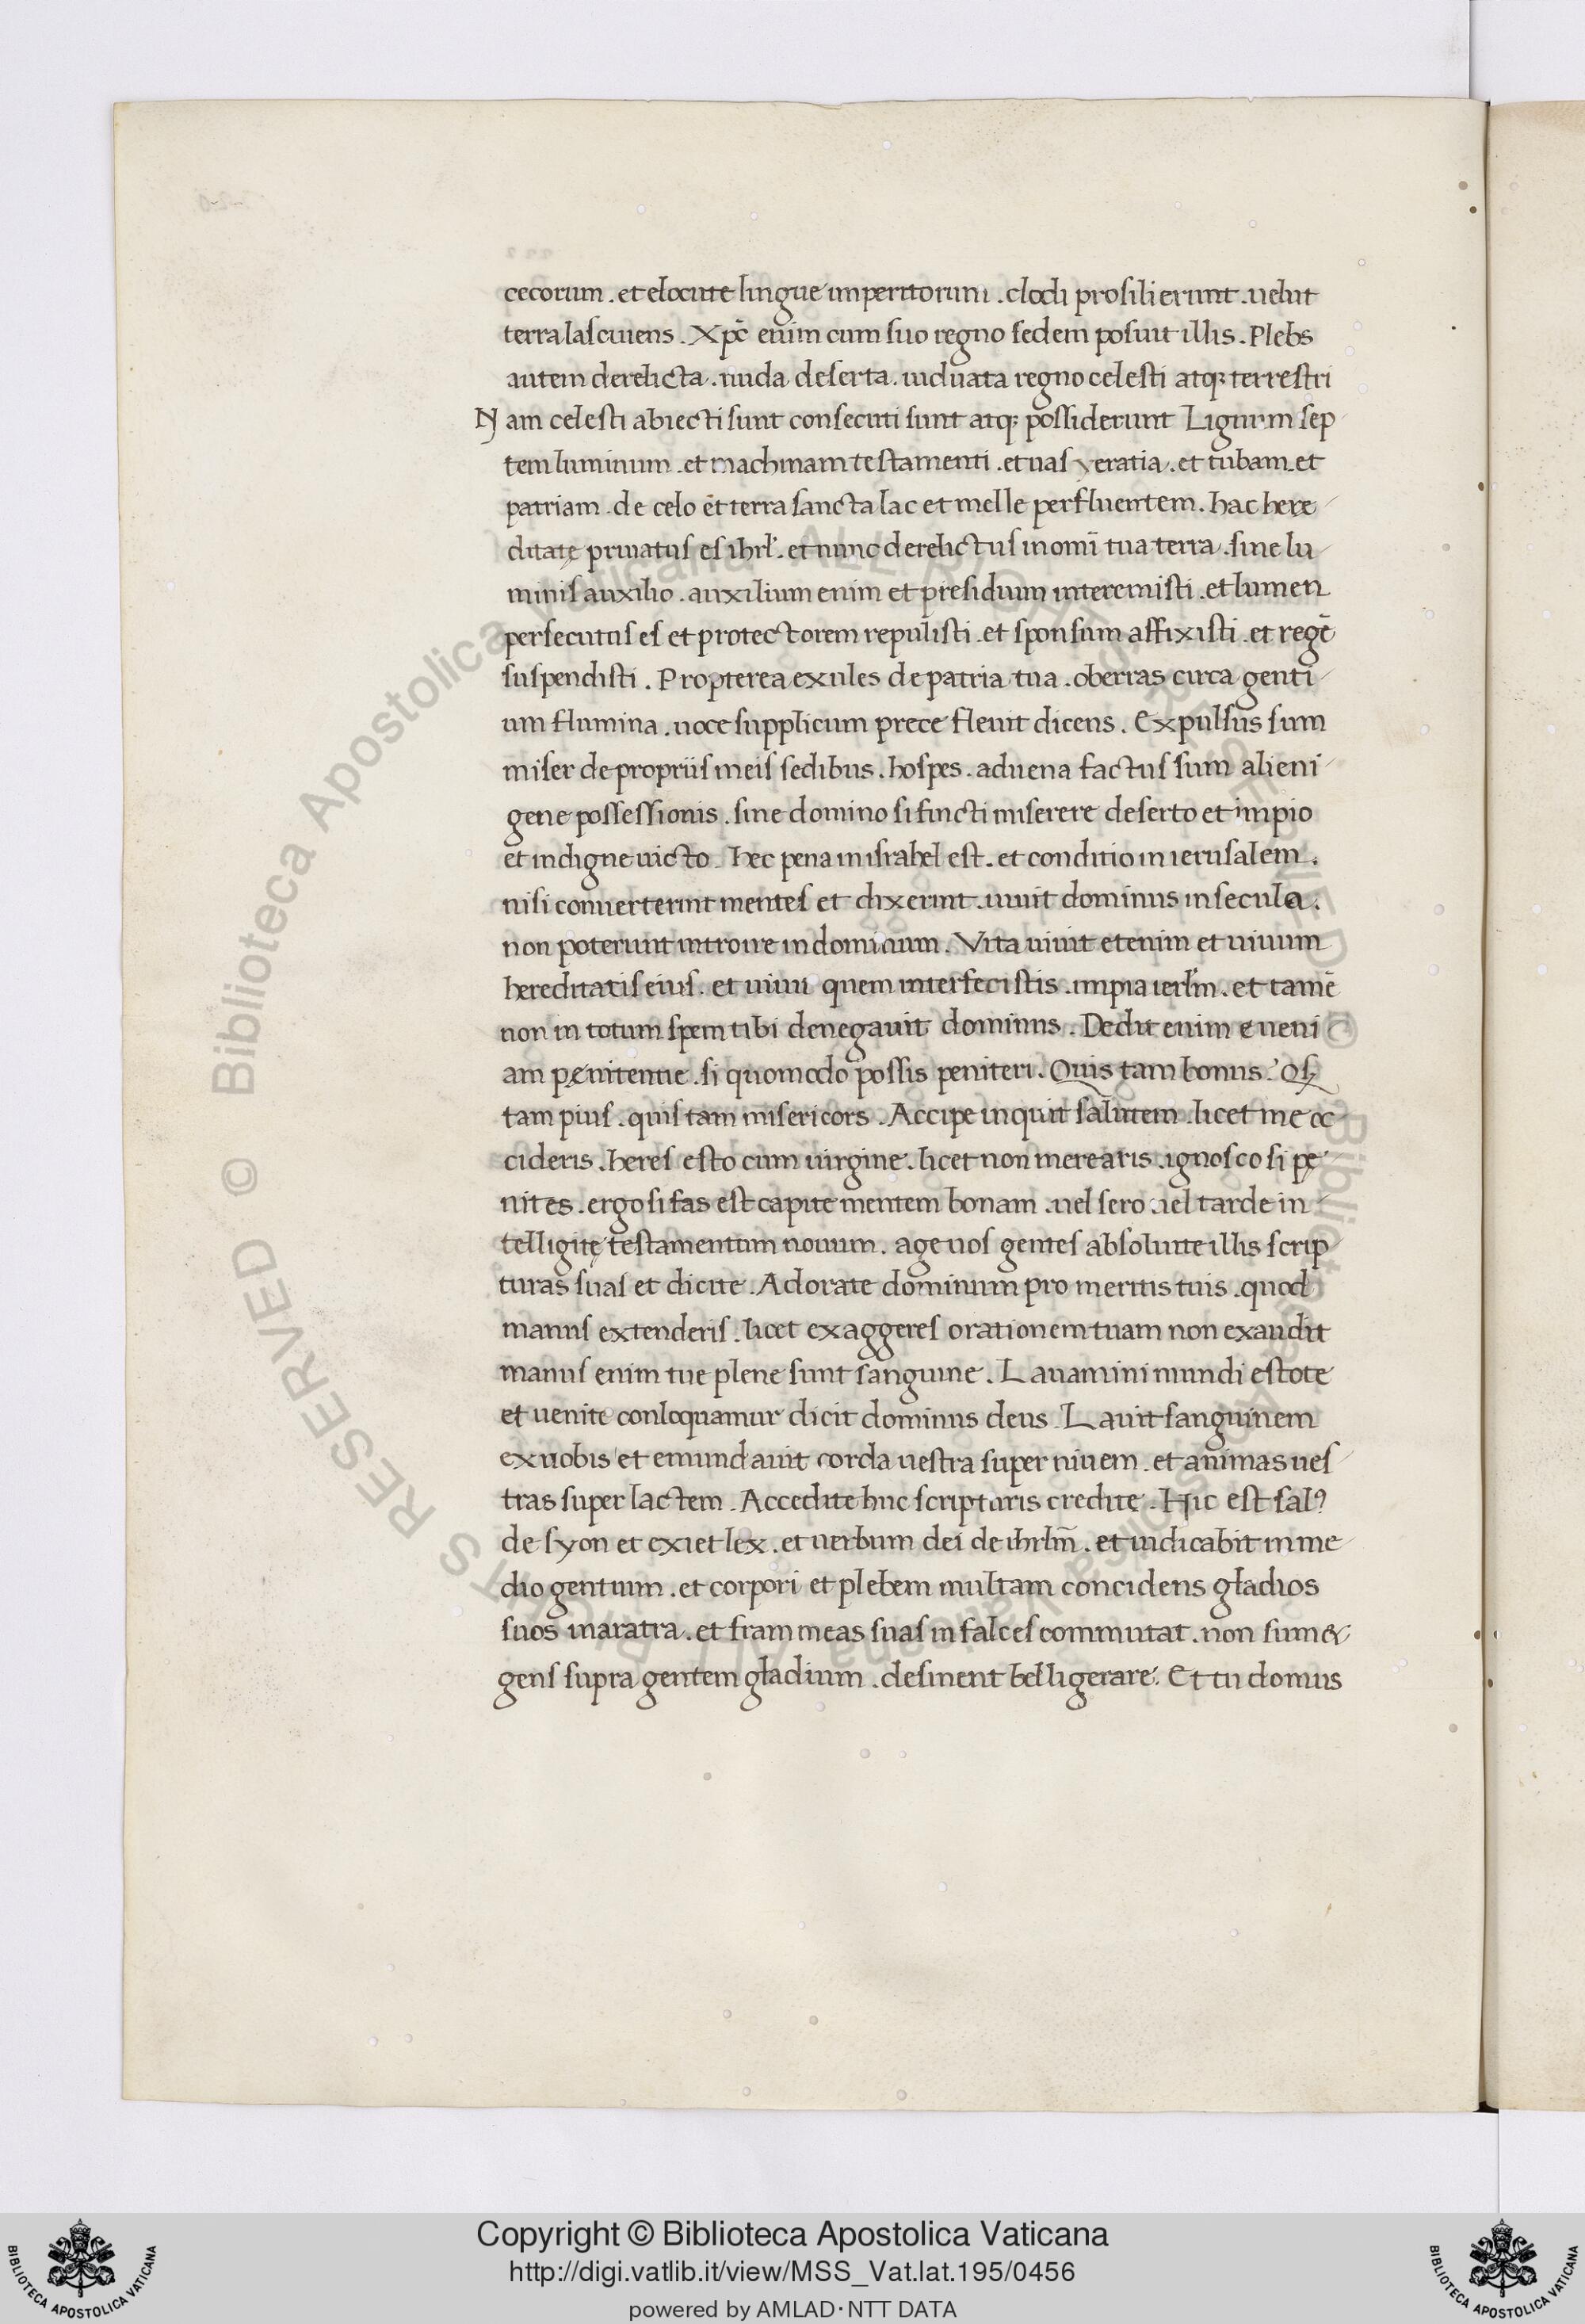 cecorum . et elocute lingue imperitorum . clodi prosilierunt . uelut
terra lasciuiens . Xpc̄ enim cum suo regno sedem posuit illis . Plebs
autem derelicta . nuda deserta . uiduata regno celesti atq; terrestri
Nam celesti abiecti sunt consecuti sunt atq; possiderunt Lignum sep
tem luminum . et machinam testamenti . et uas veratia . et tubam . et
patriam . de celo et terra sancta lac et melle perfluentem . hac here
ditatę priuatus es ihrl' . et nunc derelictus in omī tua terra . sine lu
minis auxilio . auxilium enim et presidium interemisti . et lumen
persecutus es et protectorem repulisti . et sponsum affixisti . et regē
suspendisti . Propterea exules de patria tua . oberras circa genti
um flumina . uoce supplicum prece fleuit dicens . Expulsus sum
miser de propriis meis sedibus . hospes . aduena factus sum alieni
gene possessionis . sine domino si fincti miserere deserto et impio
et indigne uicto . hec pena in israhel est . et conditio in ierusalem .
nisi conuerterint mentes et dixerint . uiuit dominus in secula .
non poterunt introire in dominum . Vita uiuit etenim et uiuum
hereditatis eius . et uiuit quem interfecistis . impia ierl'm . et tamē
non in totum spem tibi denegauit dominus . Dedit enim e ueni
am pęnitentie . si quomodo possis peniteri . Quis tam bonus . Qs
tam pius . quis tam misericors . Accipe inquit salutem . licet me oc
cideris . heres esto cum uirgine . licet non merearis . ignosco si pę
nites . ergo si fas est capite mentem bonam . uel sero uel tarde in
telligitę testamentum nouum . age uos gentes absoluite illis scrip
turas suas et dicite . Adorate dominum pro meritis tuis . quod
manus extenderis . licet exaggeres orationem tuam non exaudit
manus enim tue plene sunt sanguine . Lauamini mundi estote
et uenite conloquamur dicit dominus deus . Lauit sanguinem
ex uobis et emundauit corda uestra super niuem . et animas ues
tras super lactem . Accedite huc scripturis credite . Hic est sal9
de syon et exiet lex . et uerbum dei de ihrl̄m . et iudicabit in me
dio gentium . et corpori et plebem multam concidens gladios
suos in aratra . et frammeas suas in falces commutat . non sum&
gens supra gentem gladium . desinent belligerare . Et tu domus
© Biblioteca Apostolica Vaticana ALL RIGHTS RESERVED © Biblioteca Apostolica Vaticana ALL RIGHTS RESERVED
Copyright © Biblioteca Apostolica Vaticana
http://digi.vatlib.it/view/MSS_Vat.lat.195/0456
powered by AMLAD·NTT DATA
BIBLIOTECA APOSTOLICA VATICANA
BIBLIOTECA APOSTOLICA VATICANA